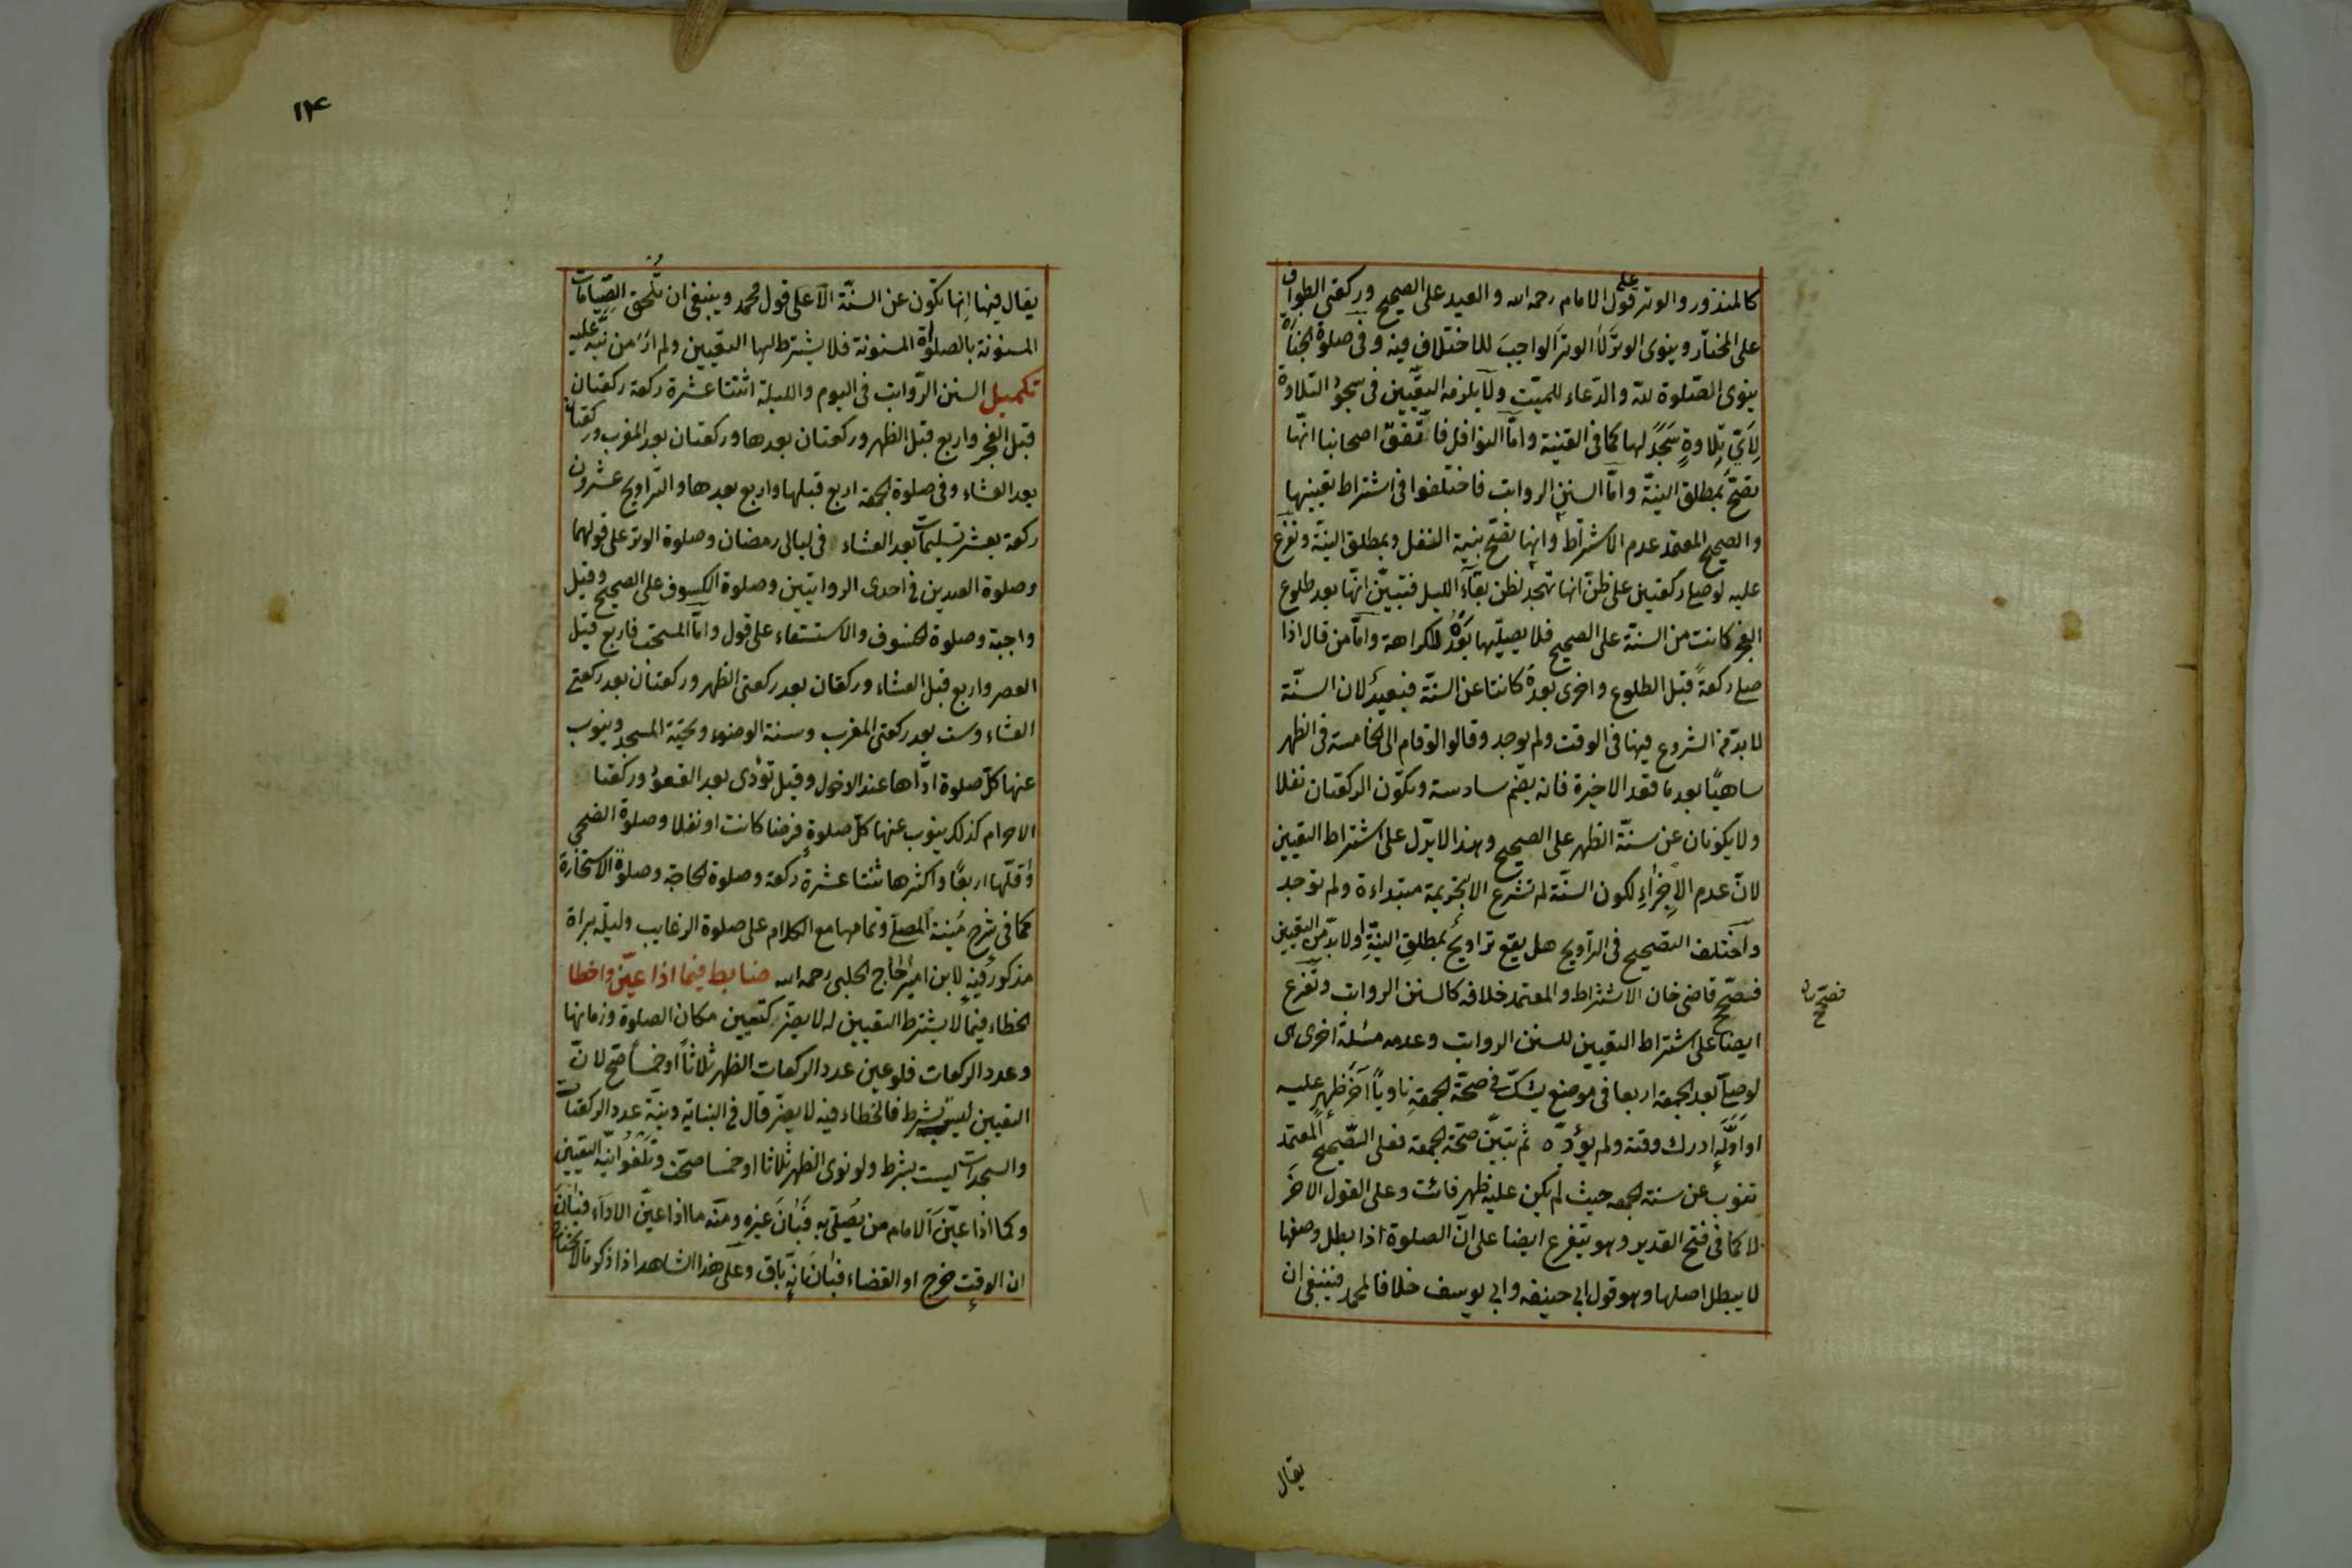 كالمنذور والوتر على قول الامام رحمه الله والعيد على الصحيح وركعتي الطواف
على المختار وينوى الوتر لا الوتر الواجب للاختلاف فيه وفى صلوة الجنازة
ينوى الصلوة لله والدعاء للميت ولا يلزمه التعيين فى سجود التلاوة
لاي تلاوة سجد لها كما فى القنية واما النوافل فاتفق اصحابنا انها
تصح بمطلق النية واما السنن الرواتب فاختلفوا فى اشتراط تعيينها
والصحيح المعتمد عدم الاشتراط وانها تصح بنية النفل وبمطلق النية وتفرع
عليه لو صلى ركعتين على ظن انها تهجد لظن بقاء الليل فتبين انها بعد طلوع
الفجر كانت من السنة على الصحيح فلا يصليها بعده للكراهة واما من قال اذا
صلى ركعة قبل الطلوع واخرى بعده كانتا عن السنة فبعيد لان السنة
لا بد من الشروع فيها فى الوقت ولم يوجد وقالوا لو قام الى الخامسة فى الظهر
ساهيا بعد ما قعد الاخيرة فانه يضم سادسة وتكون الركعتان نفلا
ولا يكونان عن سنة الظهر على الصحيح وهذا لا يدل على اشتراط التعيين
لان عدم الاجزاء لكون السنة لم تشرع الا بتحريمة مبتداءة ولم توجد
واختلف التصحيح فى التراويح هل يقع تراويح بمطلق النية او لا بد من التعيين
فصحح قاضى خان الاشتراط والمعتمد خلافه كالسنن الرواتب وتفرع
ايضا على اشتراط التعيين للسنن الرواتب وعدمه مسئلة اخرى هى
لو صلى بعد الجمعة اربعا فى موضع يشك فى صحة الجمعة ناويا آخر ظهر عليه
او اوله ادرك وقته ولم يؤده ثم تبين صحة الجمعة فعلى الصحيح المعتمد
تنوب عن سنة الجمعه حيث لم يكن عليه ظهر فائت وعلى القول الاخر
لا كما فى فتح القدير وهو يتفرع ايضا على ان الصلوة اذا بطل وصفها
لا يبطل اصلها وهو قول ابى حنيفه وابى يوسف خلافا لمحمد فينبغى ان
فصحح
يقال
۱۴
يقال فيها انها تكون عن السنة الا على قول محمد وينبغى ان تلحق الصيامات
المسنونة بالصلوة المسنونة فلا يشترط لها التعيين ولم ار من نبه عليه
تكميل السنن الرواتب فى اليوم والليلة اثنتا عشرة ركعة ركعتان
قبل الفجر واربع قبل الظهر وركعتان بعدها وركعتان بعد المغرب وركعتان
بعد العشاء وفى صلوة الجمعة اربع قبلها واربع بعدها والتراويح عشرون
ركعة بعشر تسليمات بعد العشاء فى ليالى رمضان وصلوة الوتر على قولهما
وصلوة العيدين فى احدى الروايتين وصلوة الكسوف على الصحيح وقيل
واجبة وصلوة الخسوف والاستسقاء على قول واما المستحب فاربع قبل
العصر واربع قبل العشاء وركعتان بعد ركعتى الظهر وركعتان بعد ركعتى
العشاء وست بعد ركعتى المغرب وسنة الوضوء وتحية المسجد وينوب
عنها كل صلوة اداها عند الدخول وقيل تؤدى بعد القعود وركعتا
الاحرام كذلك ينوب عنها كل صلوة فرضا كانت او نفلا وصلوة الضحى
واقلها اربعا واكثرها ثنتا عشرة ركعة وصلوة الحاجة وصلوة الاستخارة
كما فى شرح منية المصلى وتمامها مع الكلام على صلوة الرغايب وليلة براة
مذكور فيه لابن امير الحاج الحلبى رحمه الله ضابط فيما اذا عين واخطا
الخطاء فيما لا يشترط التعيين له لا يضر كتعيين مكان الصلوة وزمانها
وعدد الركعات فلو عين عدد الركعات الظهر ثلاثا او خمسا صح لان
التعيين ليس بشرط فالخطاء فيه لا يضر قال فى البناية ونية عدد الركعات
والسجدات ليست بشرط ولو نوى الظهر ثلاثا او خمسا صحت وتلغوا نية التعيين
وكما اذا عين الامام من يصلى به فبان غيره ومنه ما اذا عين الاداء فبان
ان الوقت خرج او القضاء فبان انه باق وعلى هذا الشاهد اذا ذكر ما لا يحتاج